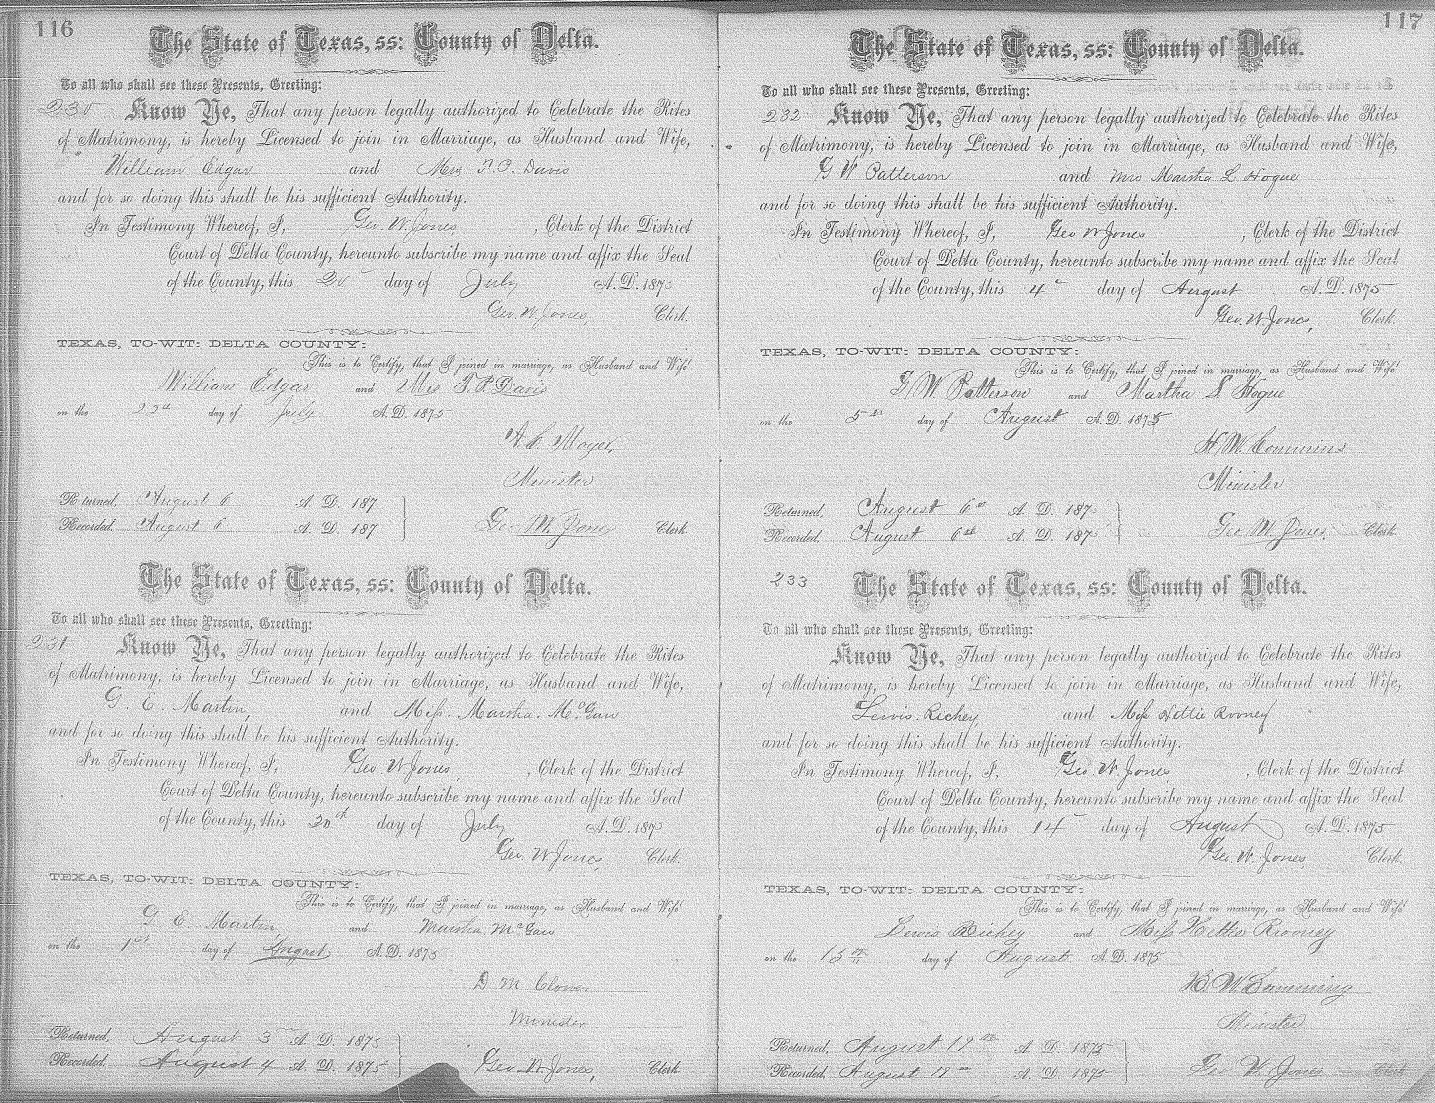 116
The State of Texas, ss: County of Delta.
To all who shall see these Presents, Greeting:
230 Know Ye, That any person legally authorized to Celebrate the Rites
of Matrimony, is hereby Licensed to join in Marriage, as Husband and Wife,
William Edgar and Mrs Davis
and for so doing this shall be his sufficient Authority.
In Testimony Whereof, I, Geo. W. Jones, Clerk of the District
Court of Delta County, hereunto subscribe my name and affix the Seal
of the County, this 20 day of July A.D. 187
Geo. W. Jones, Clerk.
TEXAS, TO-WIT: DELTA COUNTY:
This is to Certify, that I joined in marriage, as Husband and Wife
William Edgar and Davis
on the 22nd day of July A.D. 1875
Minister
Returned, August 6 A.D. 187
Recorded, August 6 A.D. 187
Geo W. Jones Clerk
The State of Texas, ss: County of Delta.
To all who shall see these Presents, Greeting:
231 Know Ye, That any person legally authorized to Celebrate the Rites
of Matrimony, is hereby Licensed to join in Marriage, as Husband and Wife,
G. E. Martin, and Miss. Martha. McGaw
and for so doing this shall be his sufficient Authority.
In Testimony Whereof, I, Geo W Jones, Clerk of the District
Court of Delta County, hereunto subscribe my name and affix the Seal
of the County, this 30th day of July A.D. 187
Geo. W Jones, Clerk.
TEXAS, TO-WIT: DELTA COUNTY:
This is to Certify, that I joined in marriage, as Husband and Wife
G E Martin, and Martha McGaw
on the 1st day of August A.D. 1875
D M Clower
Minister
Returned, August 3 A.D. 1875
Recorded, August 4 A.D. 1875
Geo. W. Jones, Clerk
117
The State of Texas, ss: County of Delta.
To all who shall see these Presents, Greeting:
232 Know Ye, That any person legally authorized to Celebrate the Rites
of Matrimony, is hereby Licensed to join in Marriage, as Husband and Wife,
G W Patterson and Mrs Martha L Hogue
and for so doing this shall be his sufficient Authority.
In Testimony Whereof, I, Geo W Jones, Clerk of the District
Court of Delta County, hereunto subscribe my name and affix the Seal
of the County, this 4 day of August A.D. 1875
Geo. W. Jones, Clerk.
TEXAS, TO-WIT: DELTA COUNTY:
This is to Certify, that I joined in marriage, as Husband and Wife
G. W. Patterson and Martha L Hogue
on the 5th day of August A.D. 1875
W. Cummins
Minister
Returned, August 6th A.D. 187
Recorded August 6th A.D. 187
Geo W. Jones, Clerk
233 The State of Texas, ss: County of Delta.
To all who shall see these Presents, Greeting:
Know Ye, That any person legally authorized to Celebrate the Rites
of Matrimony, is hereby Licensed to join in Marriage, as Husband and Wife,
Lewis. Richey and Miss Hettie Rooney
and for so doing this shall be his sufficient Authority.
In Testimony Whereof, I, Geo W. Jones, Clerk of the District
Court of Delta County, hereunto subscribe my name and affix the Seal
of the County, this 14 day of August A.D. 1875
Geo. W. Jones Clerk.
TEXAS, TO-WIT: DELTA COUNTY:
This is to Certify, that I joined in marriage, as Husband and Wife
Lewis Richey and Miss Hettie Rooney
on the 15th day of August A.D. 1875
W Cumming
Minister
Returned, August 17th A.D. 1875
Recorded, August 17th A.D. 1875
Geo W. Jones Clerk